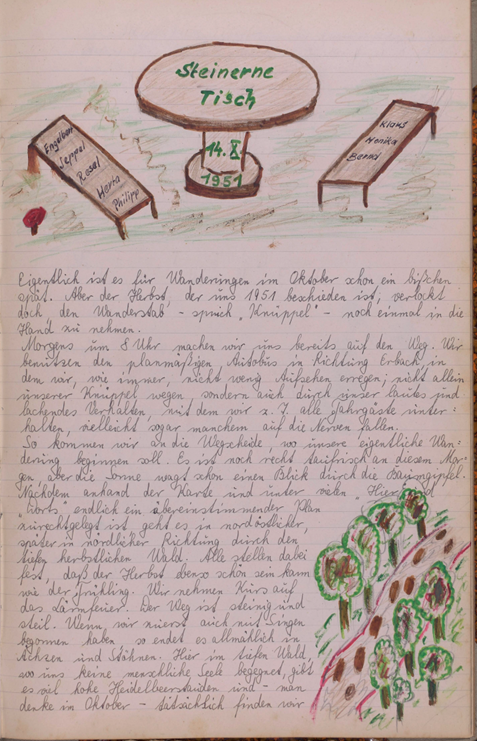 Steinerne
Tisch
14. X.
1951
Engelbert
Seppel
Resel
Herta
Philipp
Klaus
Monika
Bernd
Eigentlich ist es für Wanderungen im Oktober schon ein bißchen
spät. Aber der Herbst, der uns 1951 beschieden ist, verlockt
doch, den Wanderstab - sprich "Knüppel" - noch einmal in die
Hand zu nehmen.
Morgens um 8 Uhr machen wir uns bereits auf den Weg. Wir
benutzen den planmäßigen Autobus in Richtung Erbach, in
dem wir, wie immer, nicht wenig Aufsehen erregen; nicht allein
unserer Knüppel wegen, sondern auch durch unser lautes und
lachendes Verhalten, mit dem wir z. T. alle Fahrgäste unter-
halten, vielleicht sogar manchem auf die Nerven fallen.
So kommen wir an die Wegscheide, wo unsere eigentliche Wan-
derung beginnen soll. Es ist noch recht taufrisch an diesem Mor-
gen, aber die Sonne wagt schon einen Blick durch die Baumgipfel.
Nachdem anhand der Karte und unter vielen "Hier und
"dorts" endlich ein übereinstimmender Plan
zurechtgelegt ist, geht es in nordöstlicher,
später in nördlicher Richtung durch den
tiefen herbstlichen Wald. Alle stellen dabei
fest, daß der Herbst ebenso schön sein kann
wie der Frühling. Wir nehmen Kurs auf
das Lärmfeuer. Der Weg ist steinig und
steil. Wenn wir zuerst auch mit Singen
begonnen haben, so endet es allmählich in
Ächzen und Stöhnen. Hier im tiefen Wald,
wo uns keine menschliche Seele begegnet, gibt
es viel hohe Heidelbeerstauden und - man
denke im Oktober - tatsächlich finden wir